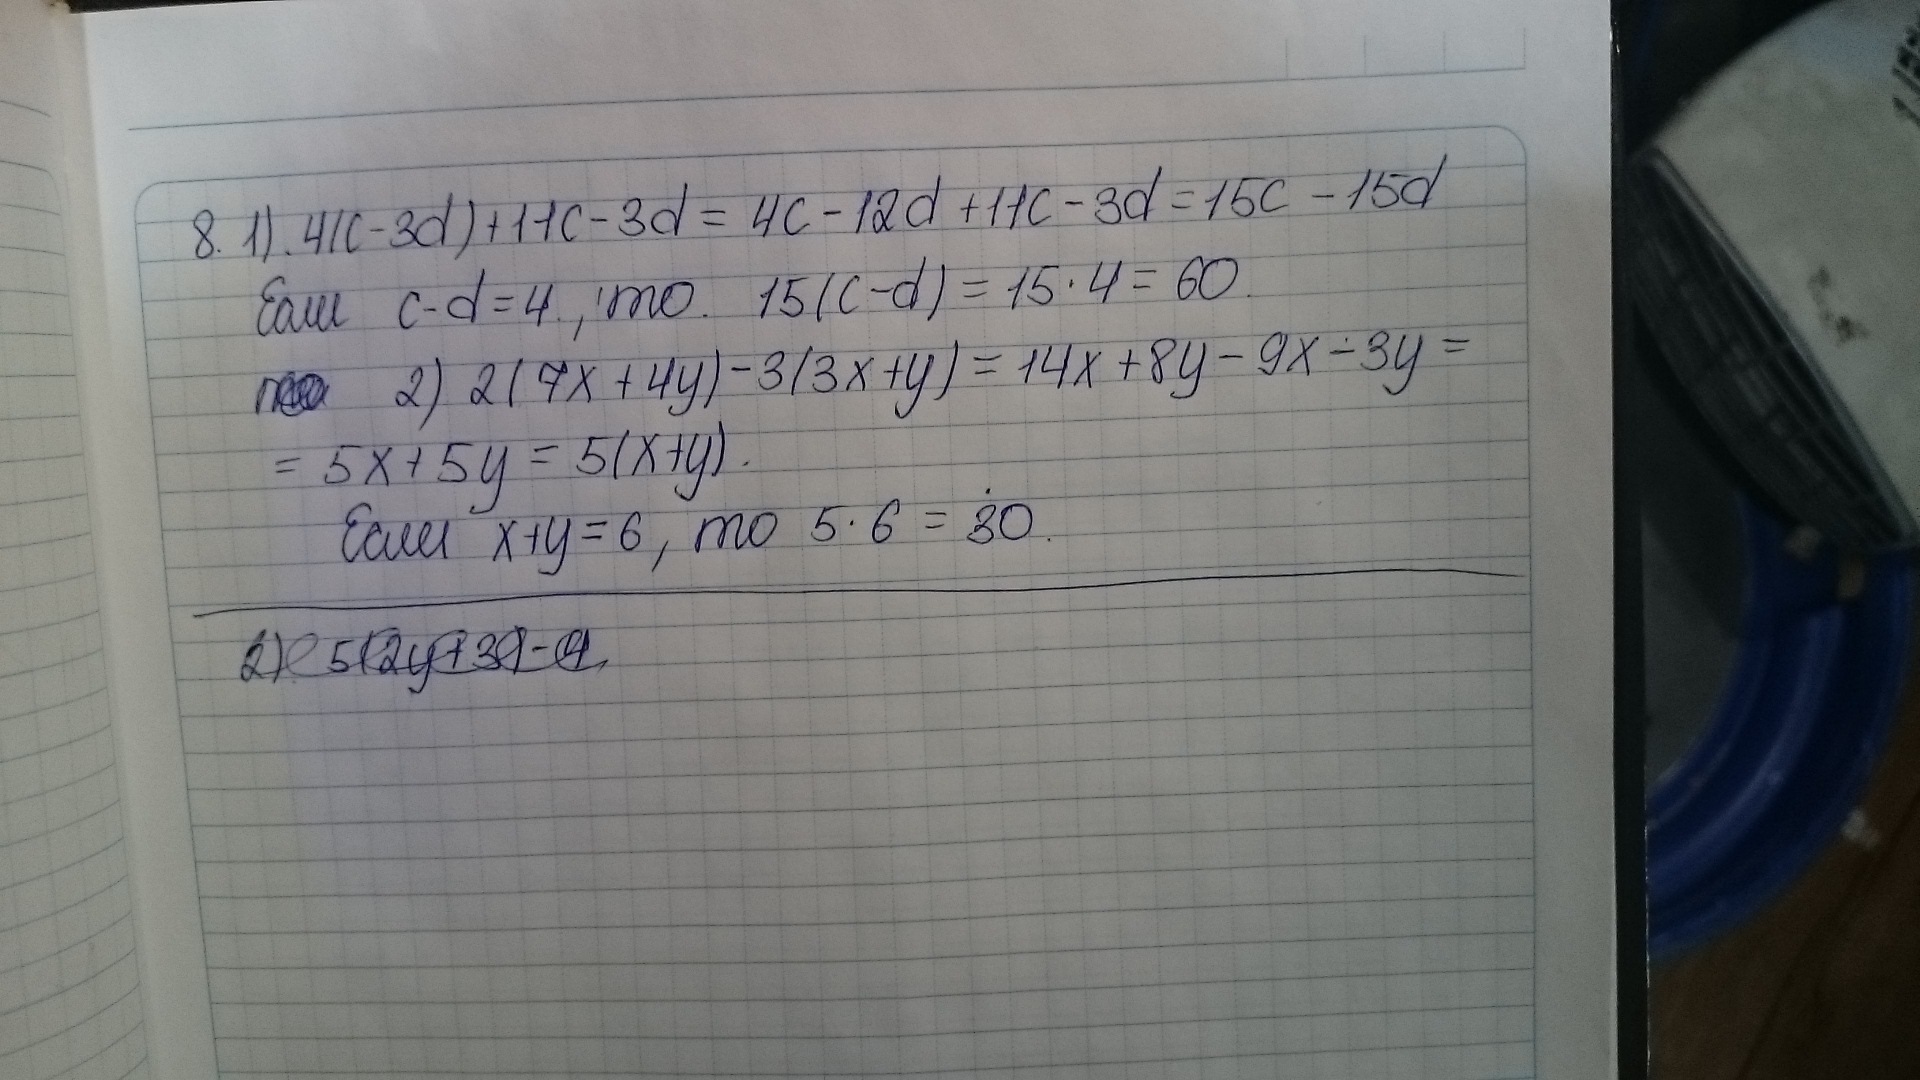 8. 1). 4(c-3d)+11c-3d = 4c-12d+11c-3d=15c-15d
Если c-d=4, то. 15(c-d)=15·4=60.
2) 2(7x+4y)-3(3x+y)=14x+8y-9x-3y=
= 5x+5y = 5(x+y).
Если x+y=6, то 5·6=30.
2) 5(2y+3)-